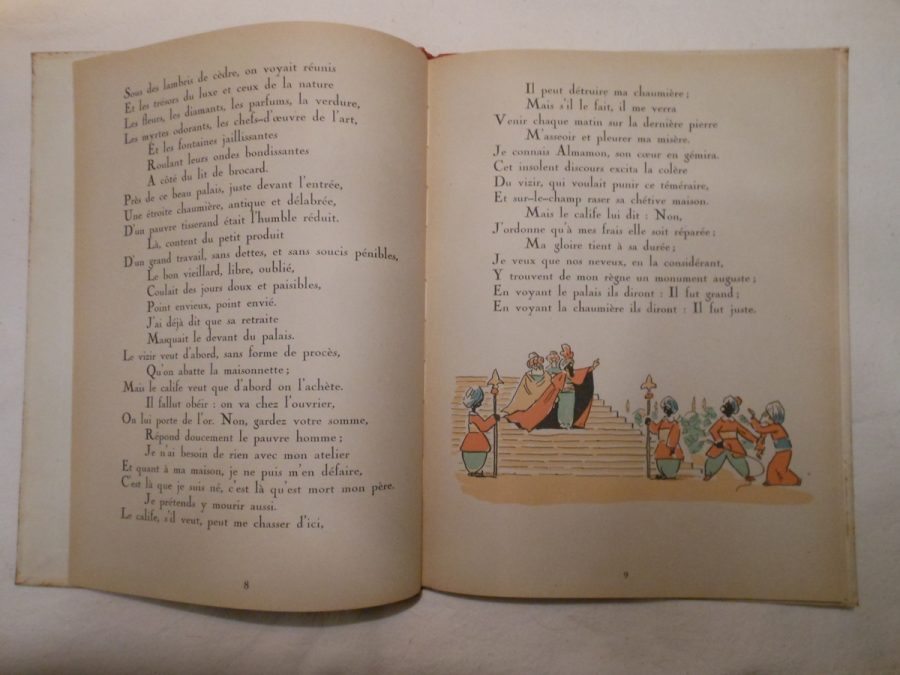 Sous des lambris de cèdre, on voyait réunis
Et les trésors du luxe et ceux de la nature
Les fleurs, les diamants, les parfums, la verdure,
Les myrtes odorants, les chefs-d'œuvre de l'art,
Et les fontaines jaillissantes
Roulant leurs ondes bondissantes
A côté du lit de brocard.
Près de ce beau palais, juste devant l'entrée,
Une étroite chaumière, antique et délabrée,
D'un pauvre tisserand était l'humble réduit.
Là, content du petit produit
D'un grand travail, sans dettes, et sans soucis pénibles,
Le bon vieillard, libre, oublié,
Coulait des jours doux et paisibles,
Point envieux, point envié.
J'ai déjà dit que sa retraite
Masquait le devant du palais.
Le vizir veut d'abord, sans forme de procès,
Qu'on abatte la maisonnette ;
Mais le calife veut que d'abord on l'achète.
Il fallut obéir : on va chez l'ouvrier,
On lui porte de l'or. Non, gardez votre somme,
Répond doucement le pauvre homme ;
Je n'ai besoin de rien avec mon atelier
Et quant à ma maison, je ne puis m'en défaire,
C'est là que je suis né, c'est là qu'est mort mon père.
Je prétends y mourir aussi.
Le calife, s'il veut, peut me chasser d'ici,
8
Il peut détruire ma chaumière ;
Mais s'il le fait, il me verra
Venir chaque matin sur la dernière pierre
M'asseoir et pleurer ma misère.
Je connais Almamon, son cœur en gémira.
Cet insolent discours excita la colère
Du vizir, qui voulait punir ce téméraire,
Et sur-le-champ raser sa chétive maison.
Mais le calife lui dit : Non,
J'ordonne qu'à mes frais elle soit réparée ;
Ma gloire tient à sa durée ;
Je veux que nos neveux, en la considérant,
Y trouvent de mon règne un monument auguste ;
En voyant le palais ils diront : Il fut grand ;
En voyant la chaumière ils diront : Il fut juste.
9